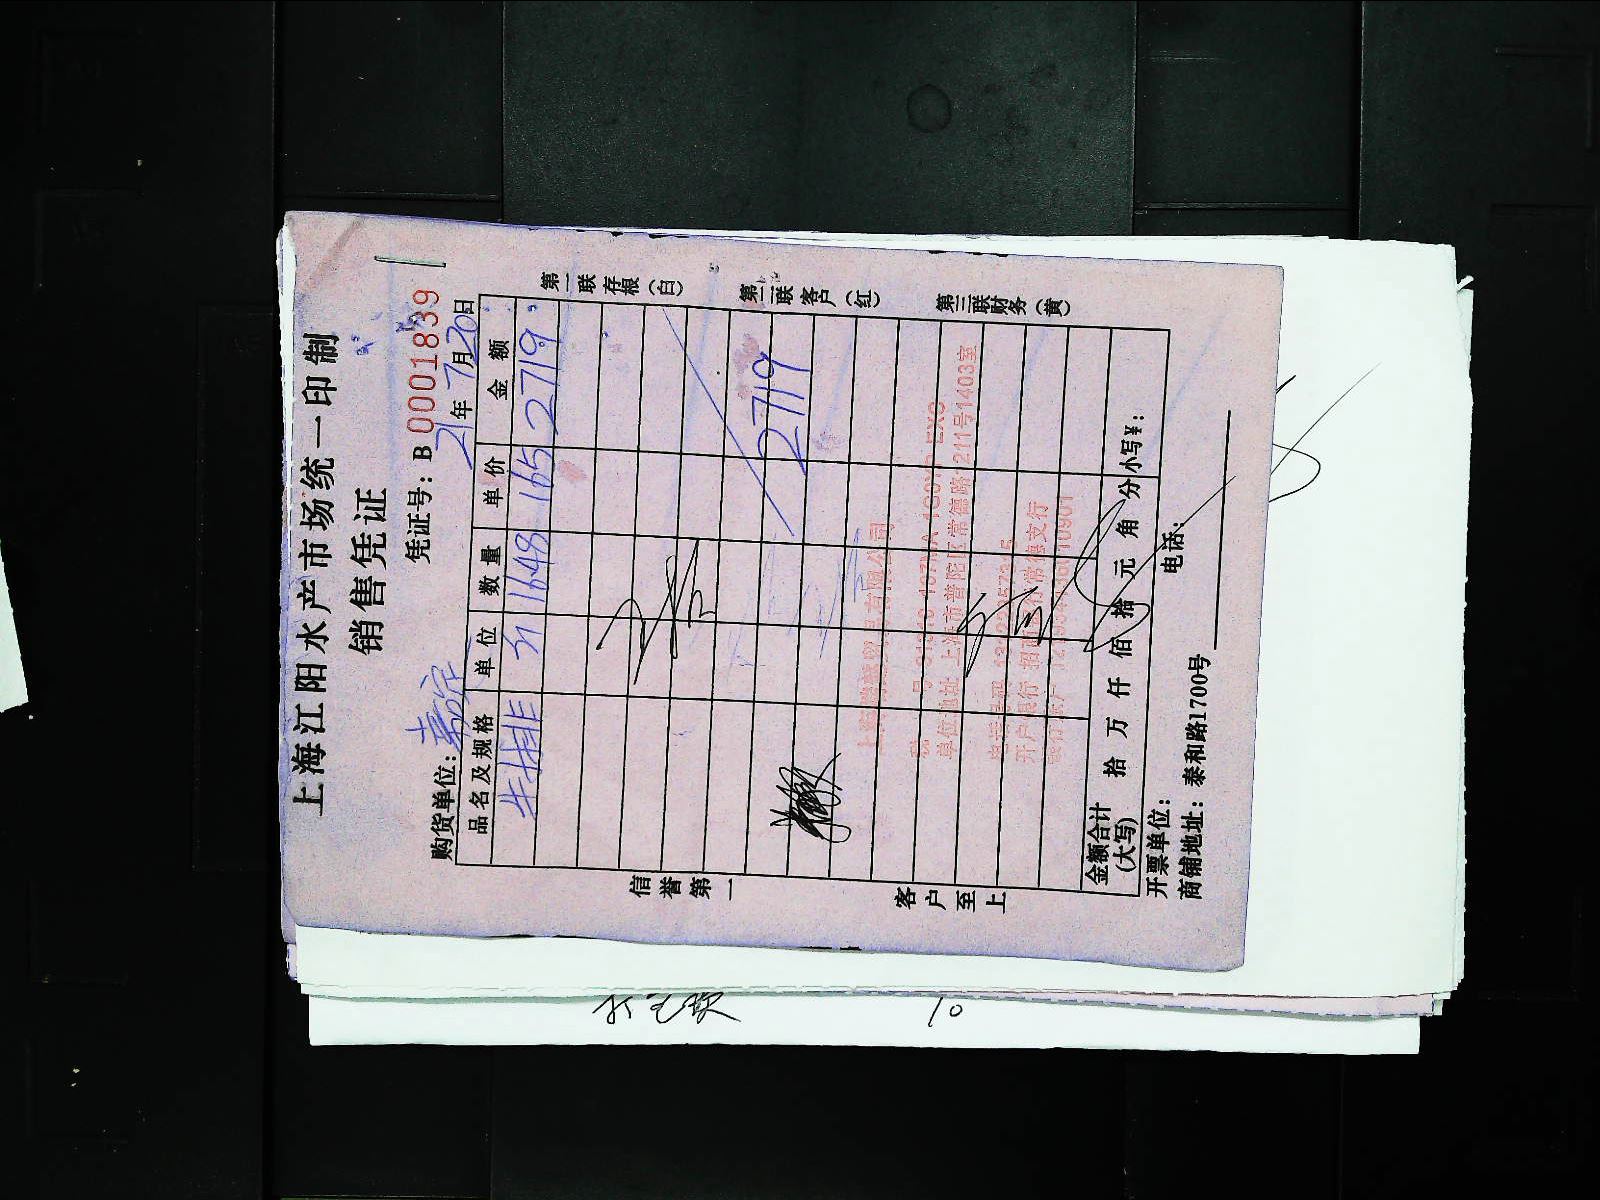 上海江阳水产市场统一印制
销售凭证
凭证号: B 0001839
购货单位:
21年7月20日
品名及规格 单位 数量 单价 金额
牛排 1648 165 2719
2719
第一联存根(白)
第二联客户(红)
第三联财务(黄)
信誉第一
客户至上
单位地址 上海市普陀区常德路1211号1403室
开户银行 招商银行常德支行
金额合计(大写) 拾 万 仟 佰 拾 元 角 分 小写¥:
开票单位: 电话:
商铺地址: 泰和路1700号
10